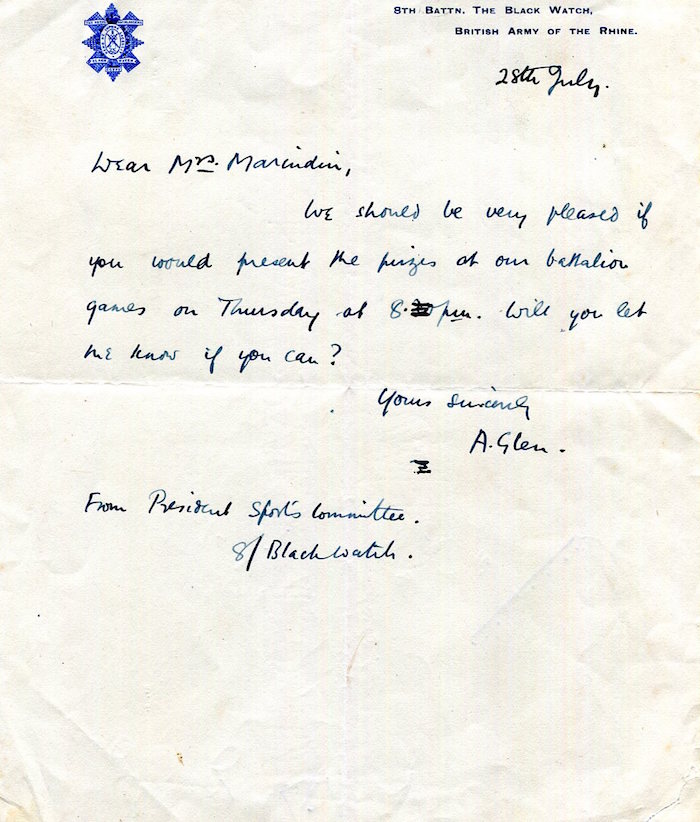 8TH BATTN. THE BLACK WATCH,
BRITISH ARMY OF THE RHINE.
28th July.
Dear Mrs. Marindin,
We should be very pleased if
you would present the prizes at our battalion
games on Thursday at 8. pm. Will you let
me know if you can?
Yours sincerely
A. Glen.
From President Sports Committee.
8/ Black Watch.